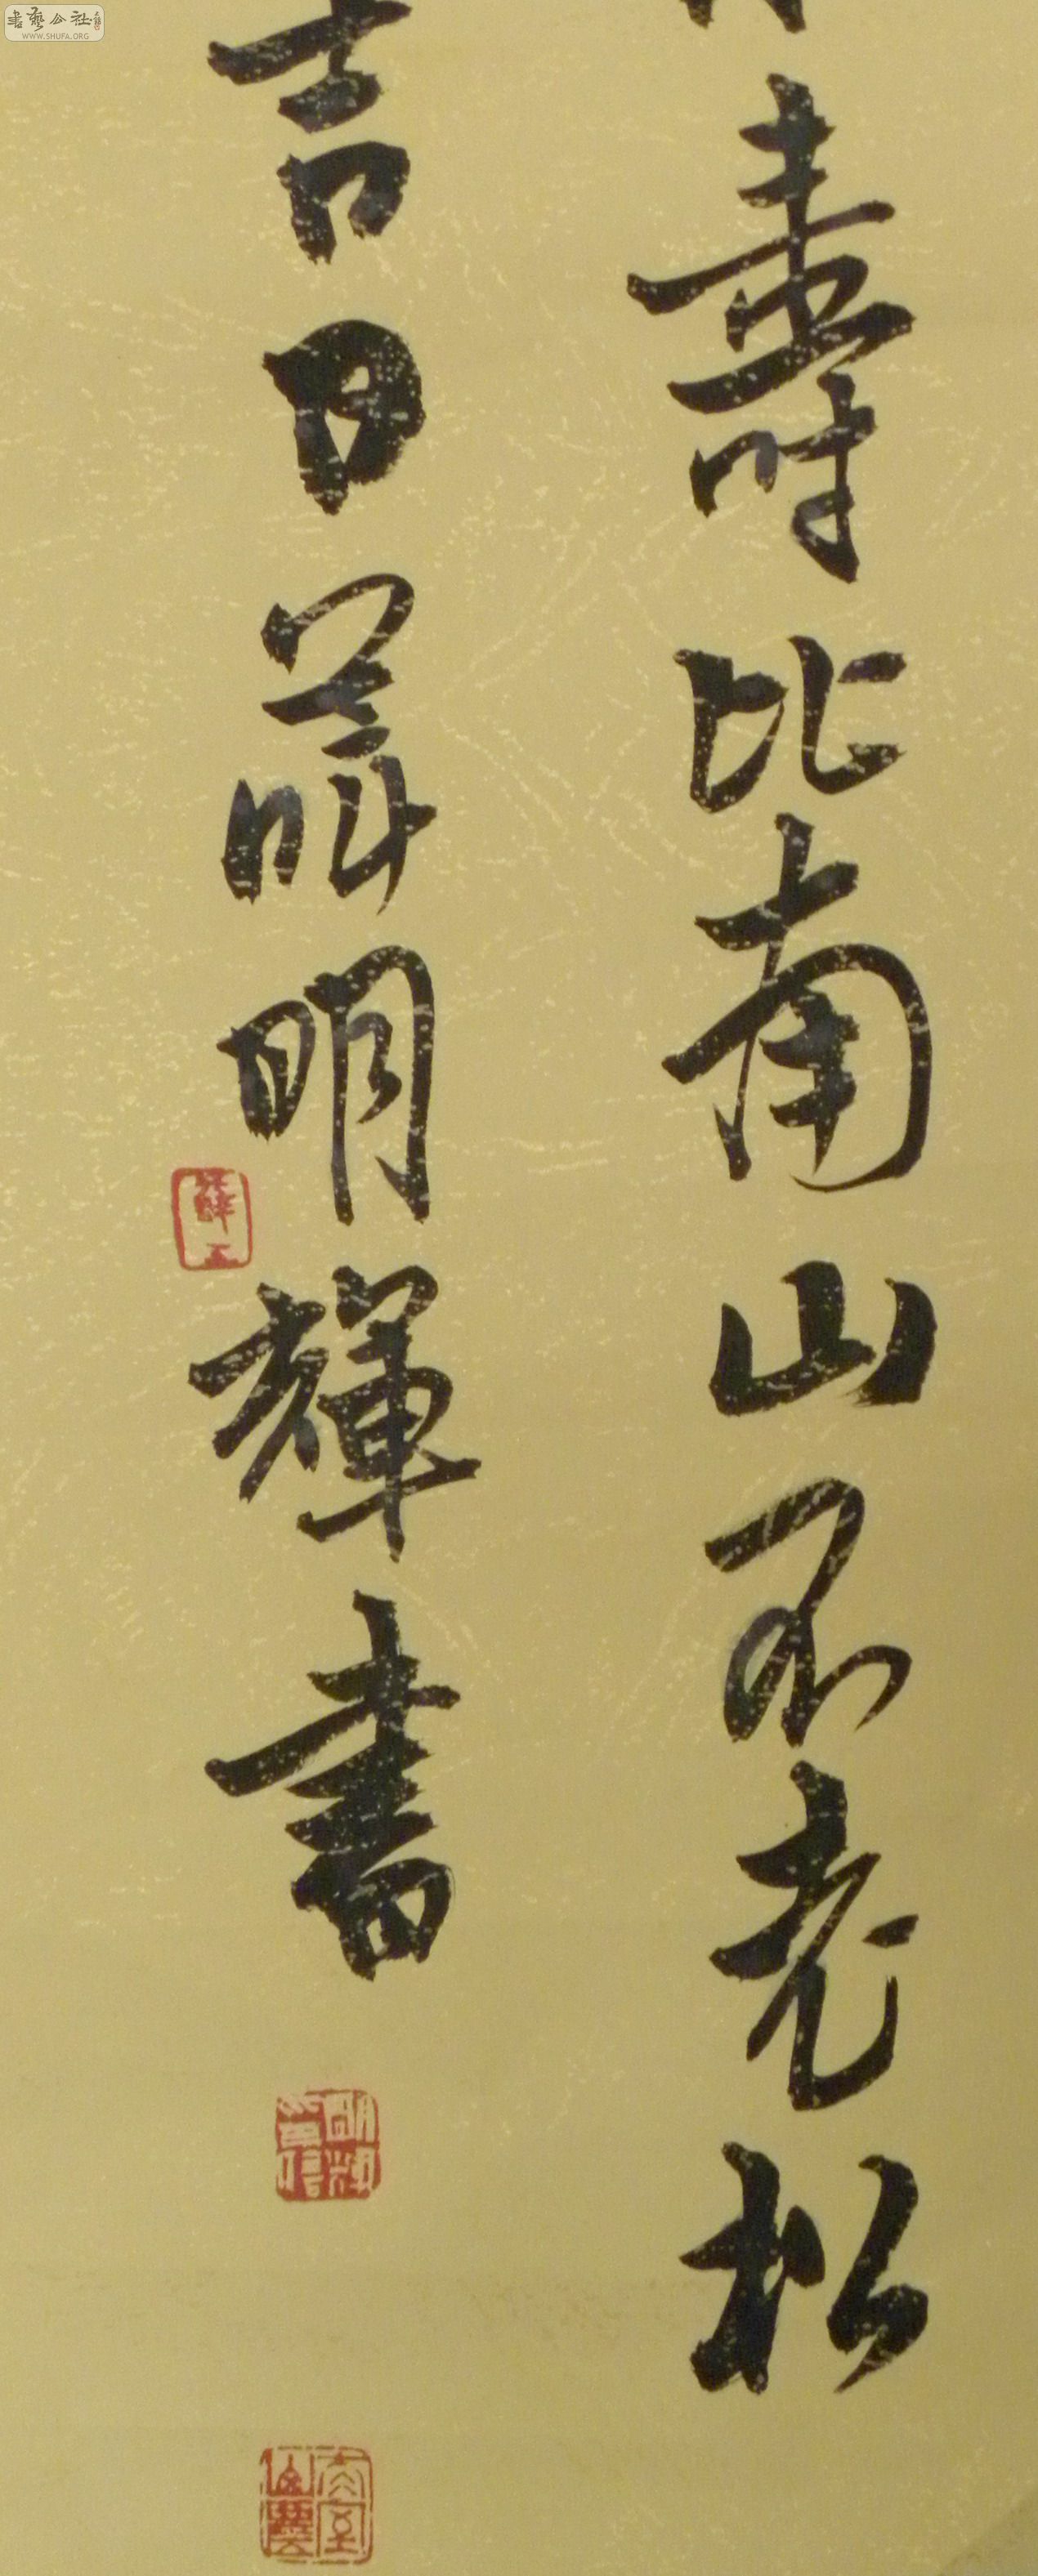 壽比南山不老松
吉日聶明輝書
書藝公社
WWW.SHUFA.ORG